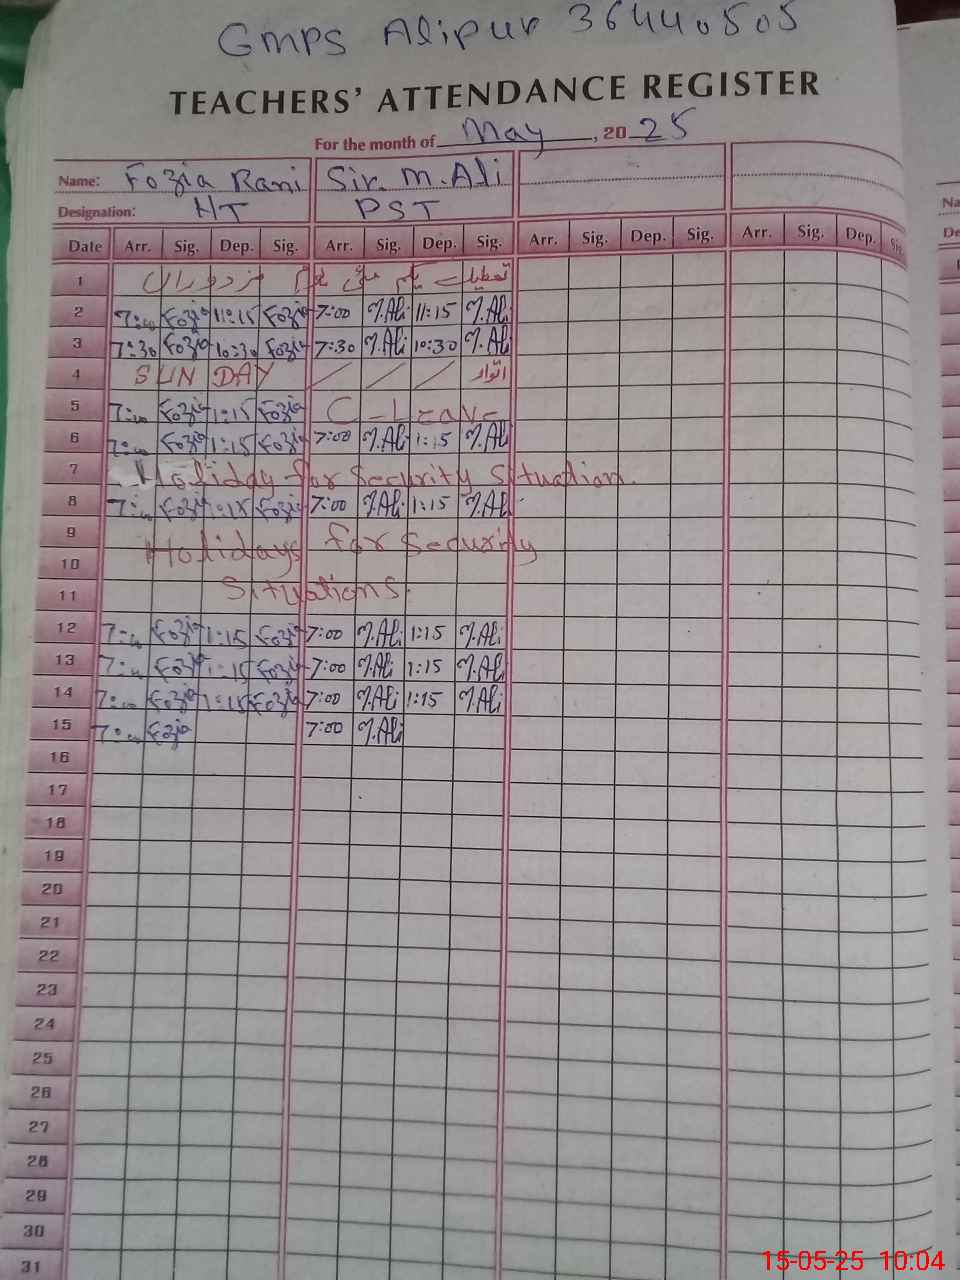 GMPS Alipur 36440505
TEACHERS' ATTENDANCE REGISTER
For the month of May, 2025
Name: Fozia Rani Sir. M. Ali
Designation: HT PST
Date Arr. Sig. Dep. Sig. Arr. Sig. Dep. Sig. Arr. Sig. Dep. Sig. Arr. Sig. Dep. Sig.
1 تعطیلات یکم مئی یوم مزدوراں
2 7:00 Fozia 11:15 Fozia 7:00 M.Ali 11:15 M.Ali
3 7:30 Fozia 10:30 Fozia 7:30 M.Ali 10:30 M.Ali
4 SUNDAY / / / اتوار
5 7:00 Fozia 1:15 Fozia C-Leave
6 7:00 Fozia 1:15 Fozia 7:00 M.Ali 1:15 M.Ali
7 Holiday for Security Situation.
8 7:00 Fozia 1:15 Fozia 7:00 M.Ali 1:15 M.Ali
9 Holidays for Security
10
11 Situations.
12 7:00 Fozia 1:15 Fozia 7:00 M.Ali 1:15 M.Ali
13 7:00 Fozia 1:15 Fozia 7:00 M.Ali 1:15 M.Ali
14 7:00 Fozia 1:15 Fozia 7:00 M.Ali 1:15 M.Ali
15 7:00 Fozia 7:00 M.Ali
16
17
18
19
20
21
22
23
24
25
26
27
28
29
30
31
15-05-25 10:04